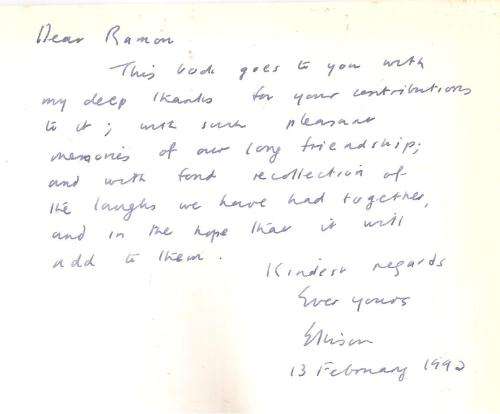 Dear Ramon
This book goes to you with
my deep thanks for your contributions
to it; with such pleasant
memories of our long friendship;
and with fond recollection of
the laughs we have had together,
and in the hope that it will
add to them.
Kindest regards
Ever yours
Ellison
13 February 1992